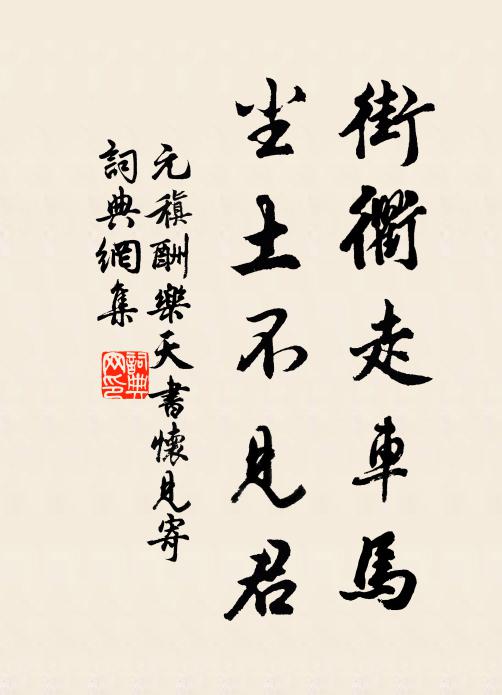 街衢走車馬
尘土不見君
元稹酬樂天書懷見寄
詞典網集
詞典網印